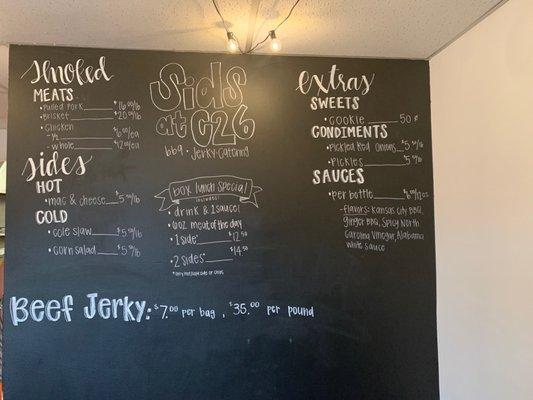 Smoked
MEATS
• Pulled Pork $16.00/lb
• Brisket $20.00/lb
• Chicken
- 1/2 $6.00/ea
- whole $12.00/ea
Sides
HOT
• mac & cheese $5.50/lb
COLD
• cole slaw $5.50/lb
• corn salad $5.50/lb
Sids
at C26
bbq • Jerky • Catering
box lunch special
includes:
• drink & 1 sauce!
• 6oz meat of the day
• 1 side* 12.50
• 2 sides* $14.50
extras
SWEETS
• cookie 50 ¢
CONDIMENTS
• Pickled Red Onions $5.50/lb
• Pickles $5.50/lb
SAUCES
• per bottle $6.00/12oz
- flavors: Kansas City BBQ,
Ginger BBQ, Spicy North
Carolina Vinegar, Alabama
white sauce
Beef Jerky: $7.00 per bag, $35.00 per pound